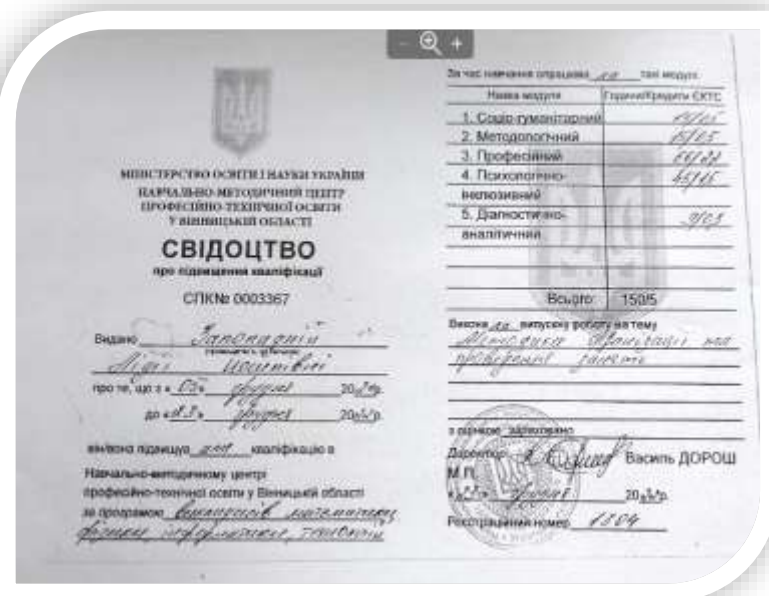 МІНІСТЕРСТВО ОСВІТИ І НАУКИ УКРАЇНИ
НАВЧАЛЬНО-МЕТОДИЧНИЙ ЦЕНТР
ПРОФЕСІЙНО-ТЕХНІЧНОЇ ОСВІТИ
У ВІННИЦЬКІЙ ОБЛАСТІ
СВІДОЦТВО
про підвищення кваліфікації
СПК№ 0003367
Видано
про те, що з « 03» грудня 20 р.
до « » грудня 20 р.
він/вона підвищув ала кваліфікацію в
Навчально-методичному центрі
професійно-технічної освіти у Вінницькій області
за програмою викладачів математики,
фізики, інформатики,
За час навчання опрацював ла такі модулі:
Назва модуля Години/Кредити ЄКТС
1. Соціо-гуманітарний
2. Методологічний 15/0,5
3. Професійний
4. Психологічно- 45/1,5
інклюзивний
5. Діагностично- 9/0,3
аналітичний
Всього: 150/5
Викона ла випускну роботу на тему
Методика організації та
проведення занять
з оцінкою зараховано
Директор Василь ДОРОШ
М.П.
грудня 20 р.
Реєстраційний номер 1804